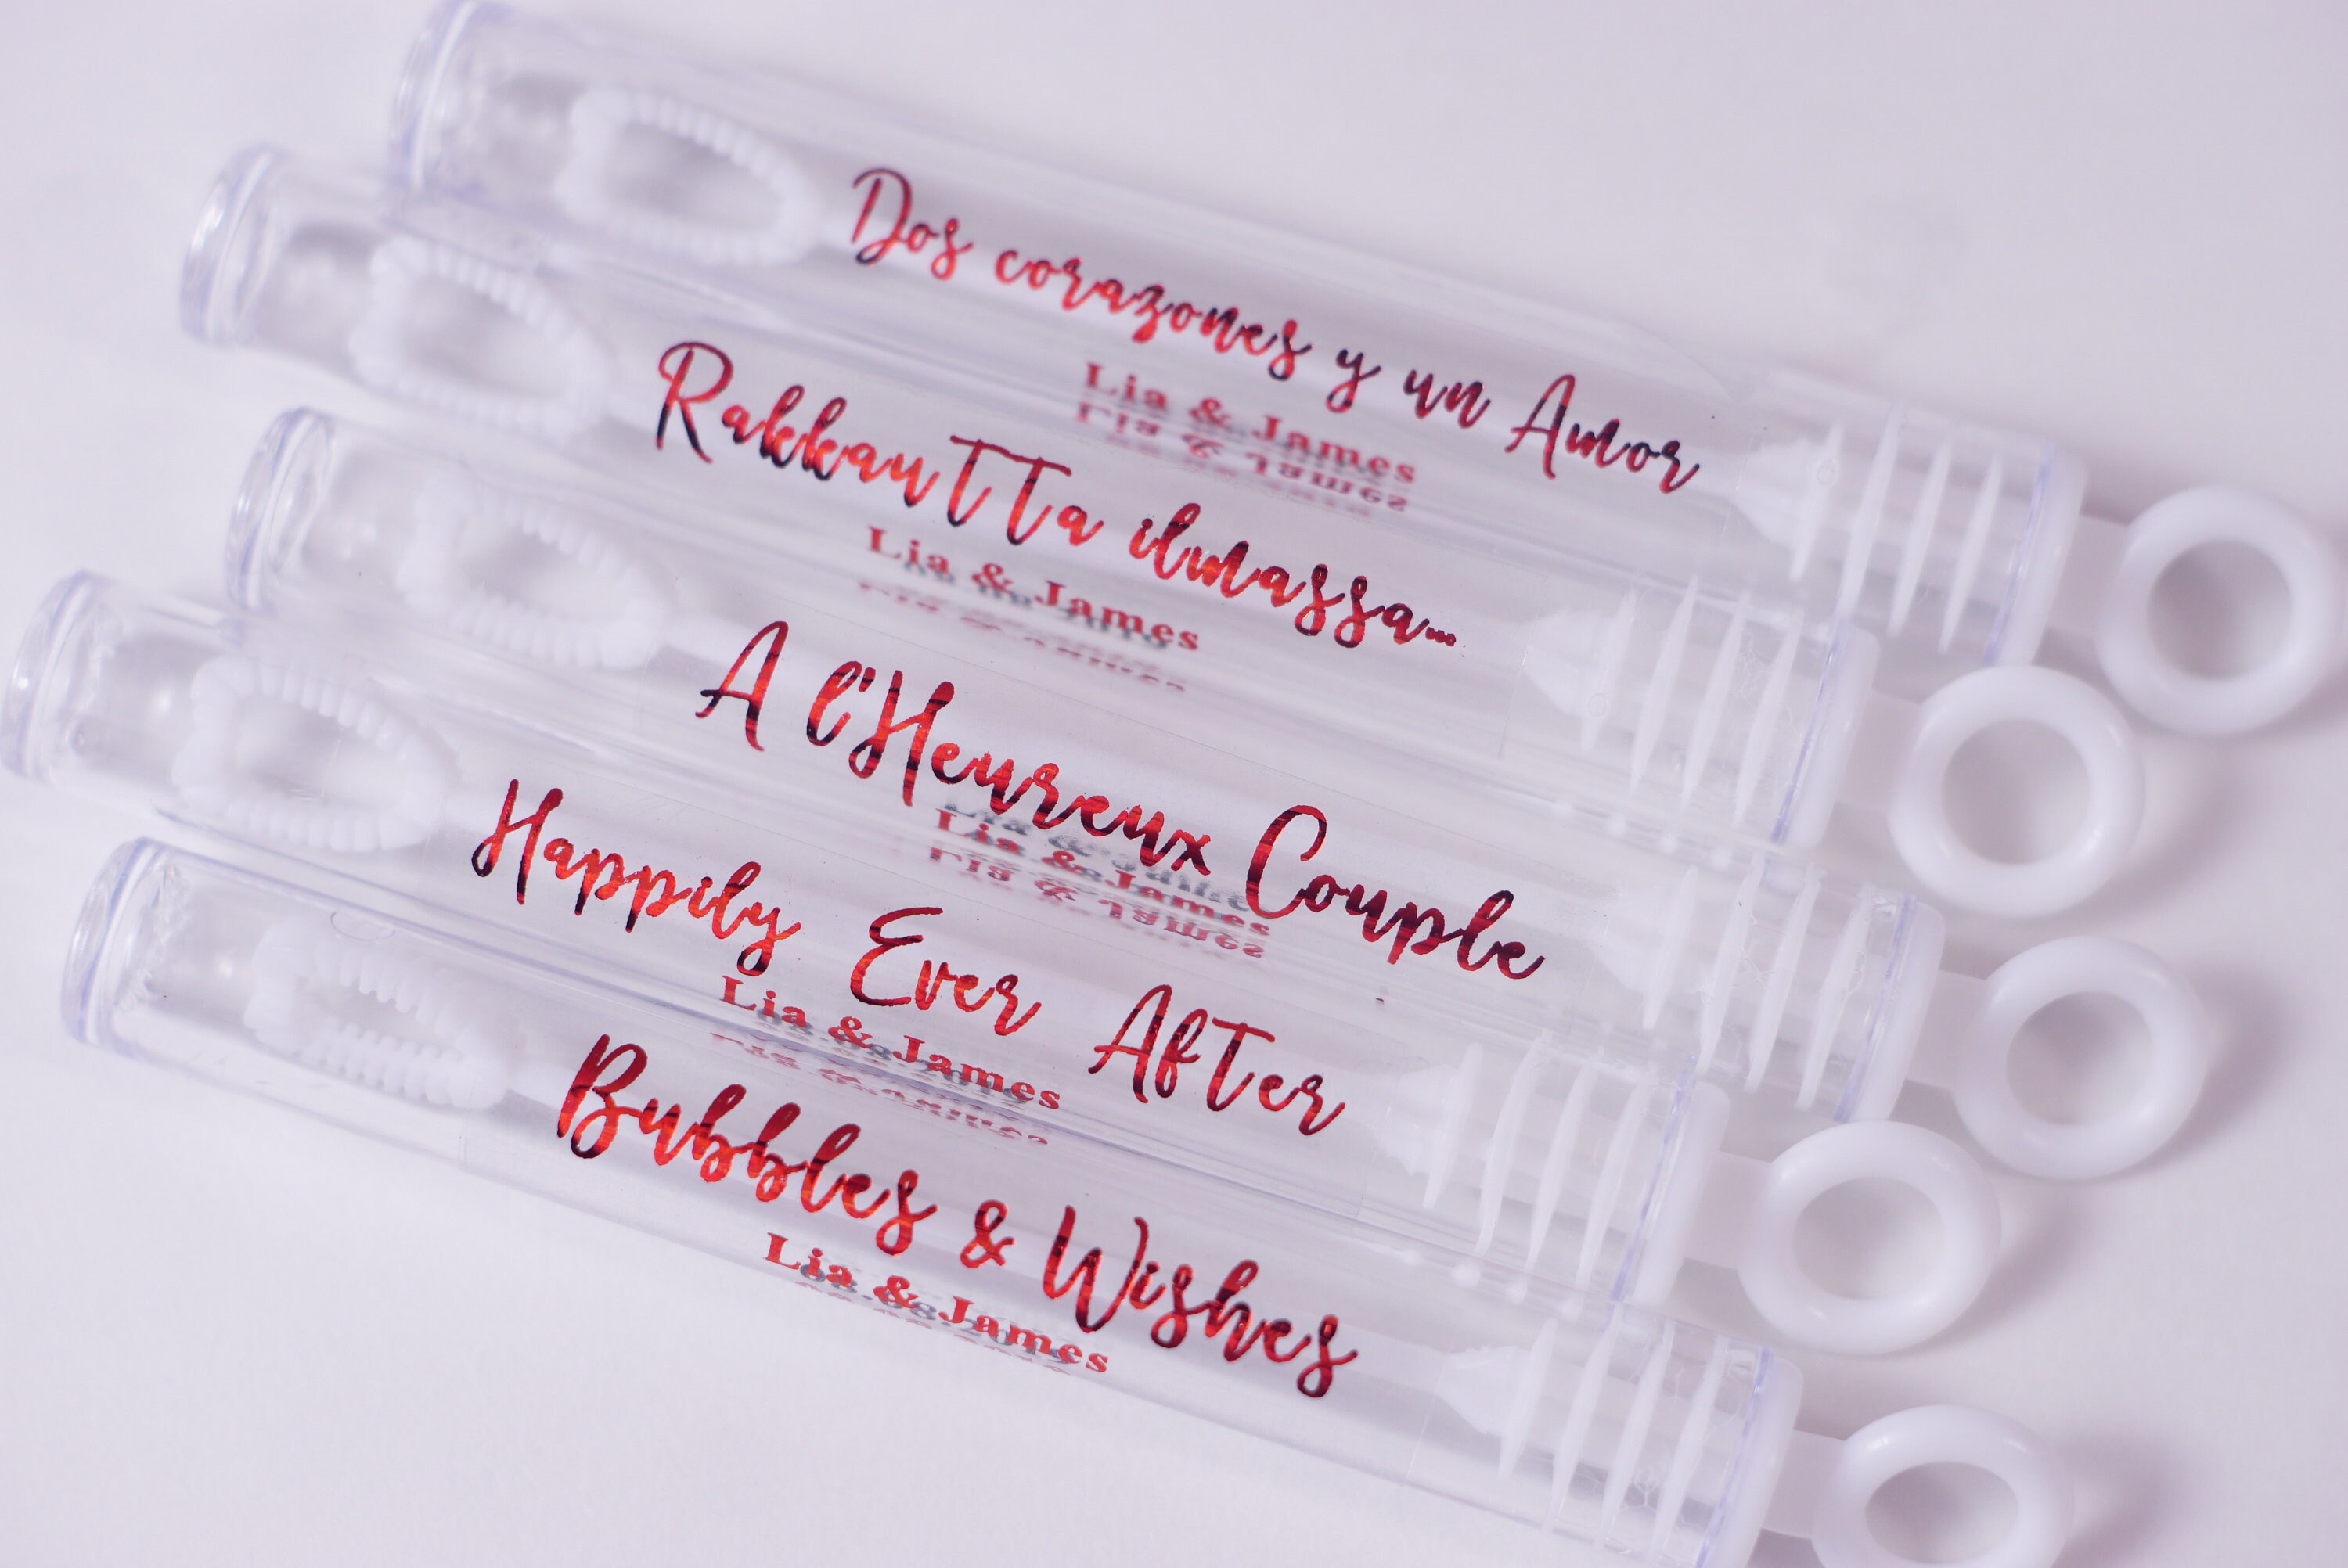 Dos corazones y un Amor
Lia & James
Rakkautta ilmassa...
Lia & James
A l'Heureux Couple
Lia & James
Happily Ever After
Lia & James
Bubbles & Wishes
Lia & James